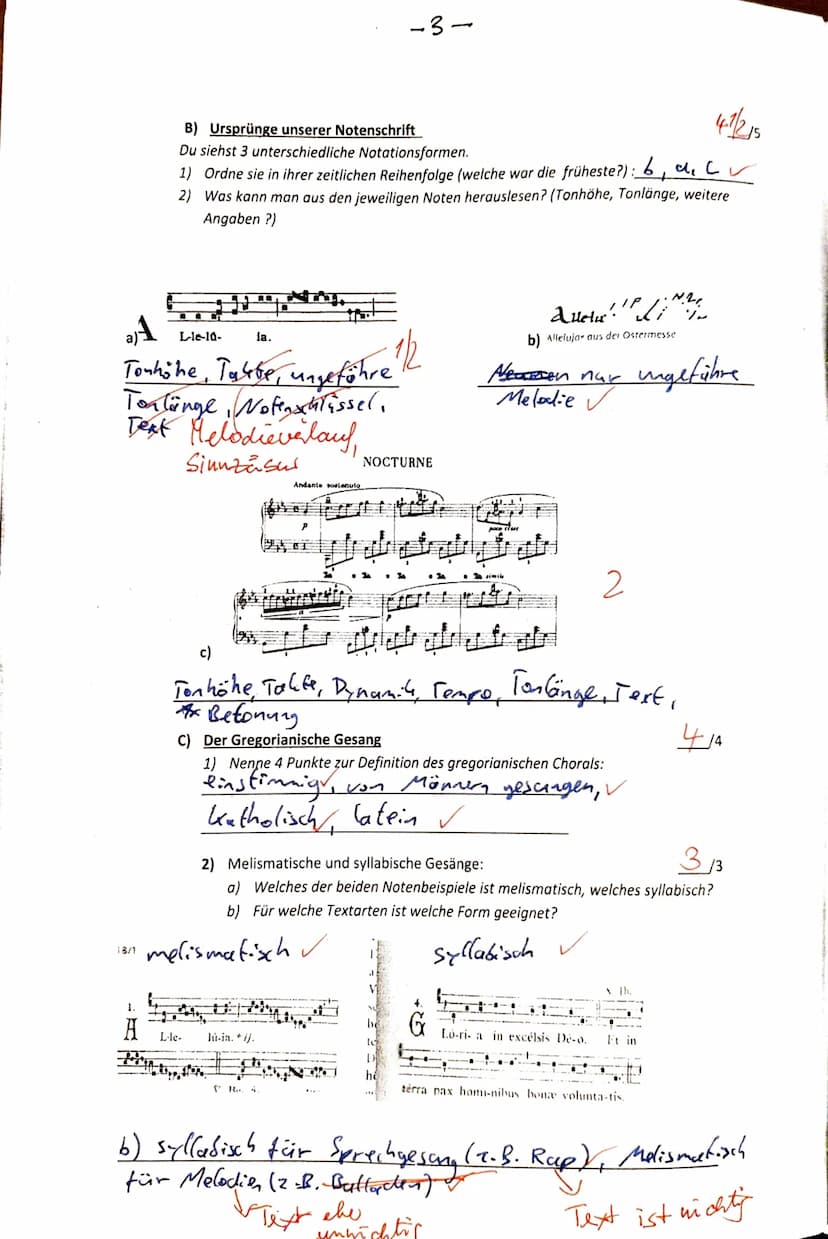 -3-
B) Ursprünge unserer Notenschrift
4 1/2 /5
Du siehst 3 unterschiedliche Notationsformen.
1) Ordne sie in ihrer zeitlichen Reihenfolge (welche war die früheste?) : b, a, c ✓
2) Was kann man aus den jeweiligen Noten herauslesen? (Tonhöhe, Tonlänge, weitere
Angaben ?)
a) A L-le-lú- ia.
b) Alleluja aus der Ostermesse
1/2
Tonhöhe, Takte, ungefähre
Tonlänge, Notenschlüssel,
Text Melodieverlauf,
Sinnzäsur
nur ungefähre
Melodie ✓
NOCTURNE
Andante sostenuto
p
poco
simile
p
2
c)
Tonhöhe, Takte, Dynamik, Tempo, Tonlänge, Text,
Betonung
C) Der Gregorianische Gesang
4 /4
1) Nenne 4 Punkte zur Definition des gregorianischen Chorals:
einstimmig ✓, von Männern gesungen, ✓
katholisch ✓, latein ✓
2) Melismatische und syllabische Gesänge:
3 /3
a) Welches der beiden Notenbeispiele ist melismatisch, welches syllabisch?
b) Für welche Textarten ist welche Form geeignet?
melismatisch ✓
syllabisch ✓
1.
A L-le- lú-ia. * ij.
4.
G Ló-ri- a in excélsis Dé-o. Et in
térra pax homi-nibus bonæ volunta-tis.
b) syllabisch für Sprechgesang (z.B. Rap) ✓, Melismatisch
für Melodien (z.B. Balladen) ✓
Text eher
unwichtig
Text ist wichtig